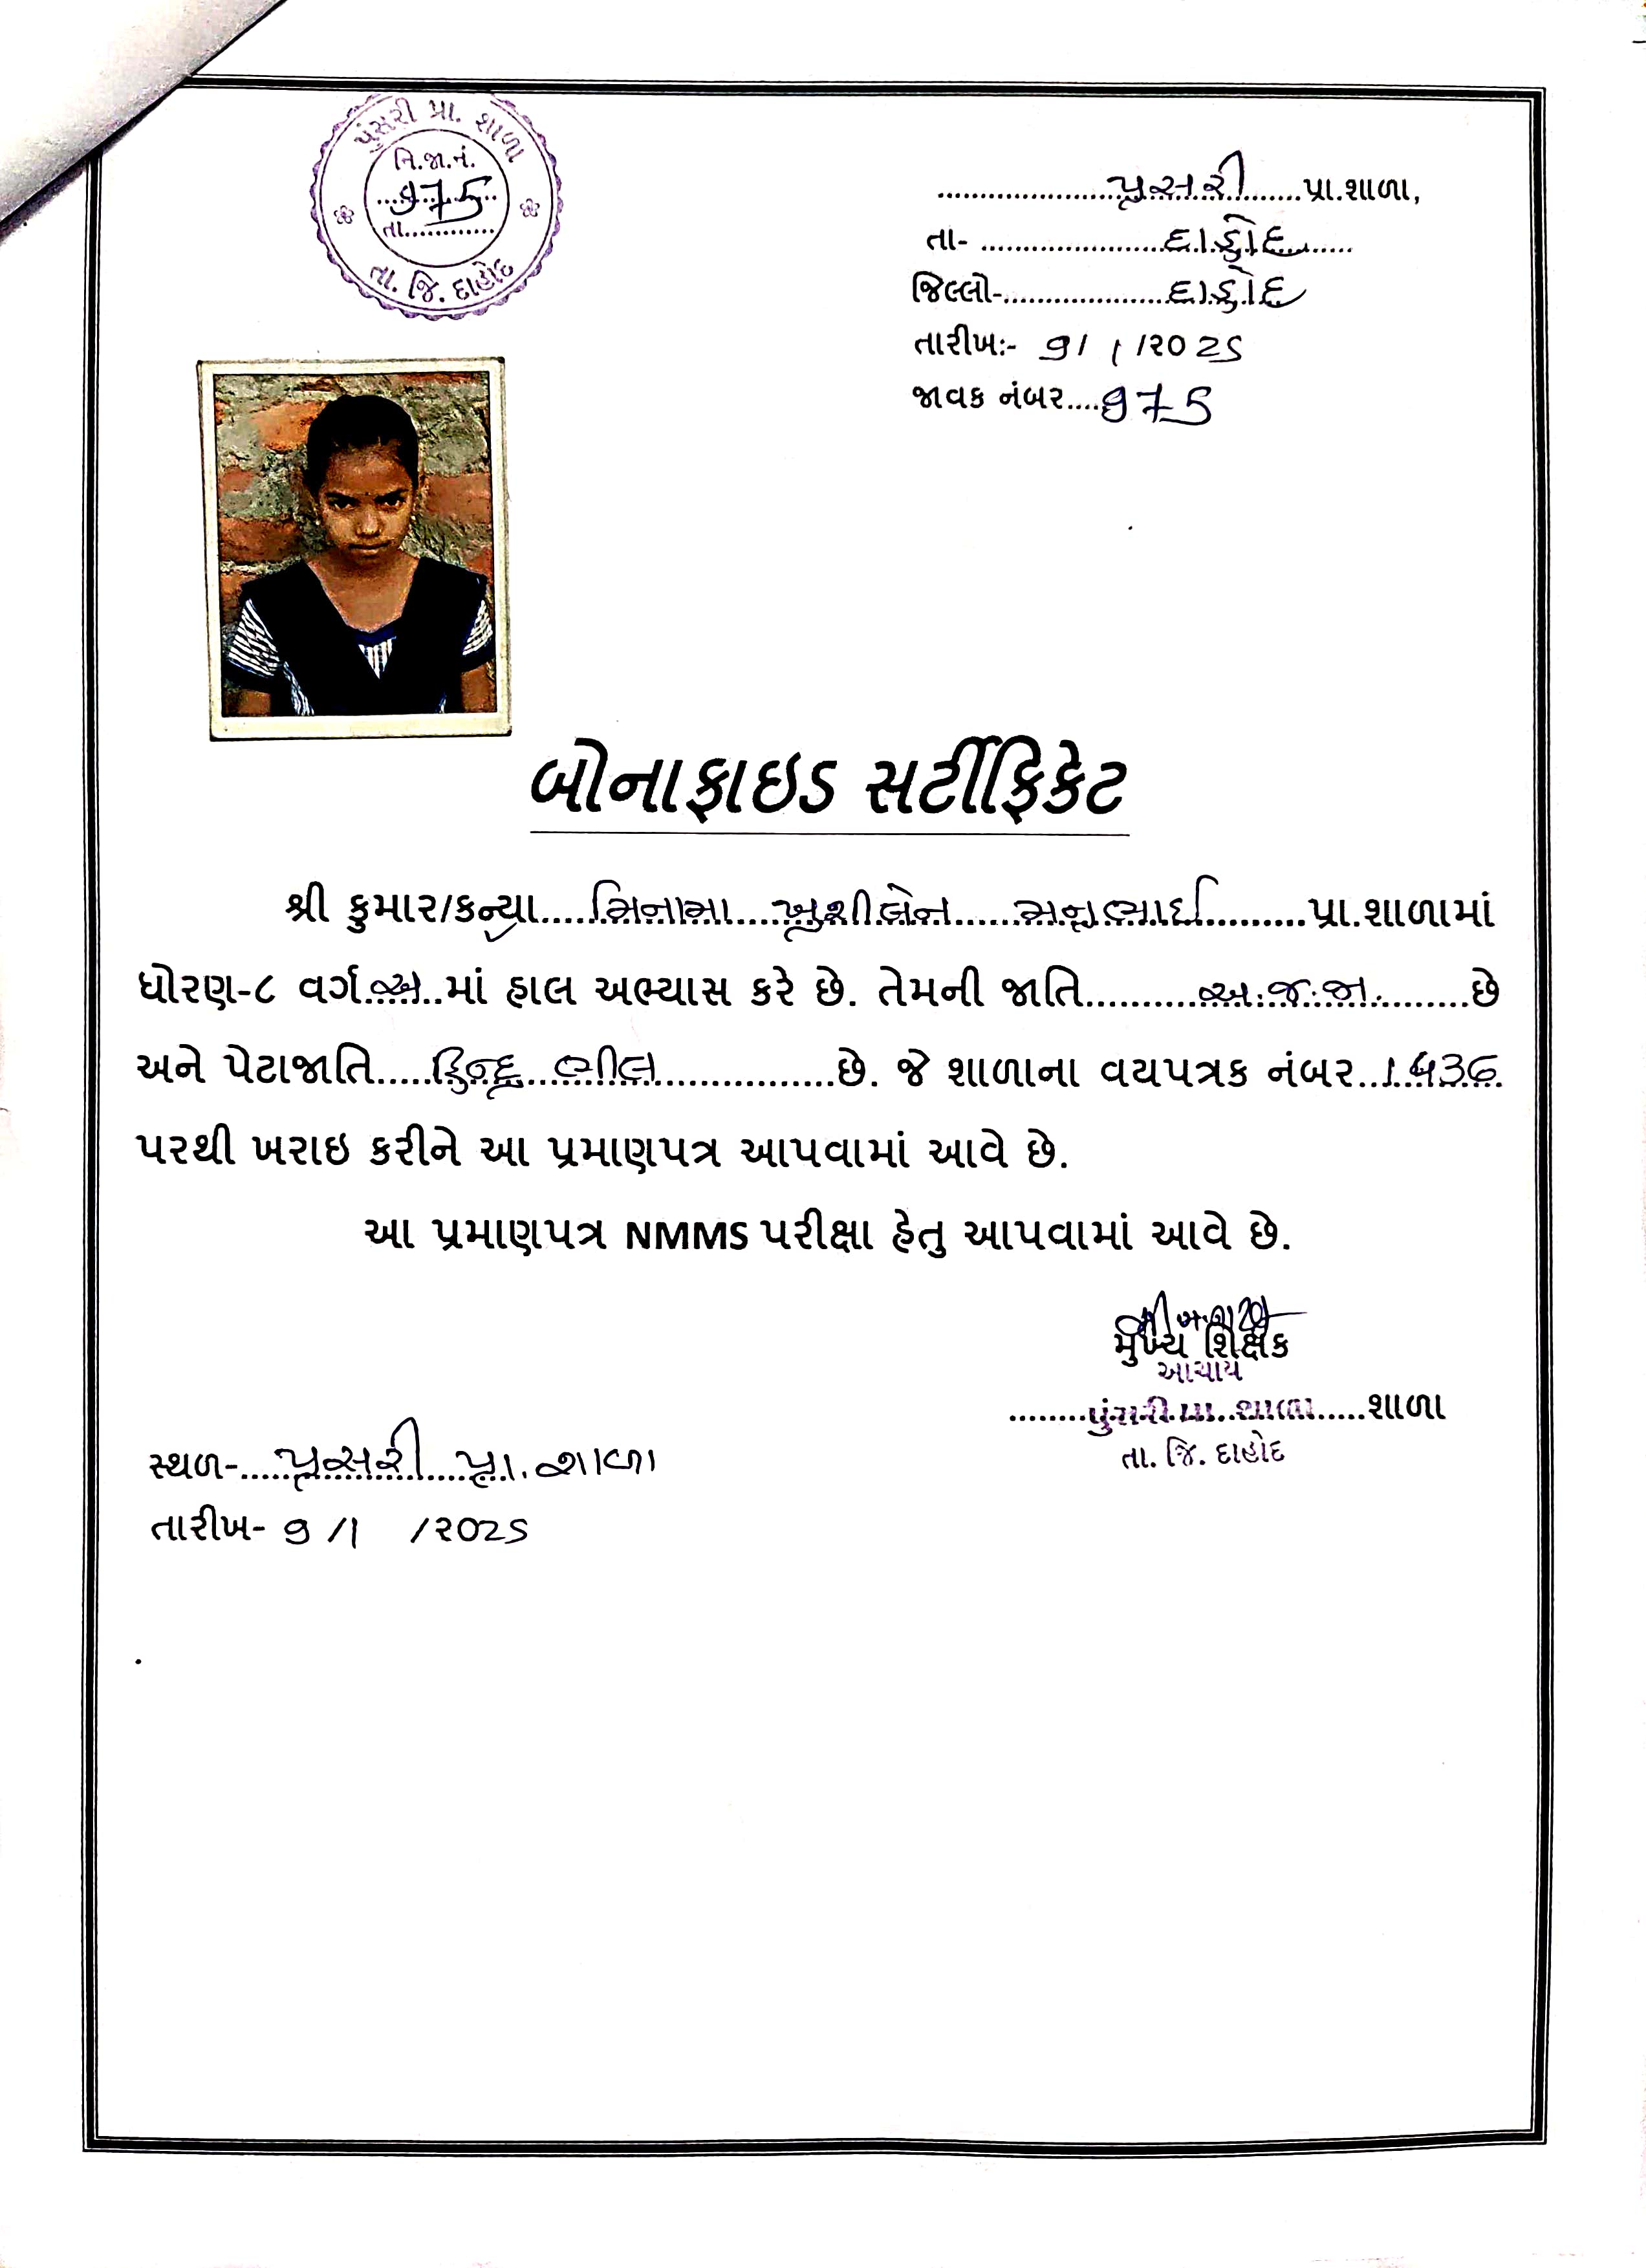 પુંસરી પ્રા. શાળા
નિ.જા.નં.
975
તા............
તા. જિ. દાહોદ
પુસરી પ્રા.શાળા,
તા- દાહોદ
જિલ્લો- દાહોદ
તારીખઃ- 9/1/૨૦25
જાવક નંબર....975
બોનાફાઇડ સર્ટીફિકેટ
શ્રી કુમાર/કન્યા.....મિનામા ખુશીબેન મનુભાઈ.........પ્રા.શાળામાં
ધોરણ-૮ વર્ગ.અ..માં હાલ અભ્યાસ કરે છે. તેમની જાતિ..........અ.જ.જા.........છે
અને પેટાજાતિ.....હિન્દુ ભીલ..............છે. જે શાળાના વયપત્રક નંબર...1436
પરથી ખરાઇ કરીને આ પ્રમાણપત્ર આપવામાં આવે છે.
આ પ્રમાણપત્ર NMMS પરીક્ષા હેતુ આપવામાં આવે છે.
મુખ્ય શિક્ષક
આચાર્ય
........પુંસરી પ્રા. શાળા.....શાળા
તા. જિ. દાહોદ
સ્થળ-.....પુસરી પ્રા. શાળા
તારીખ- 9/1 /૨૦25